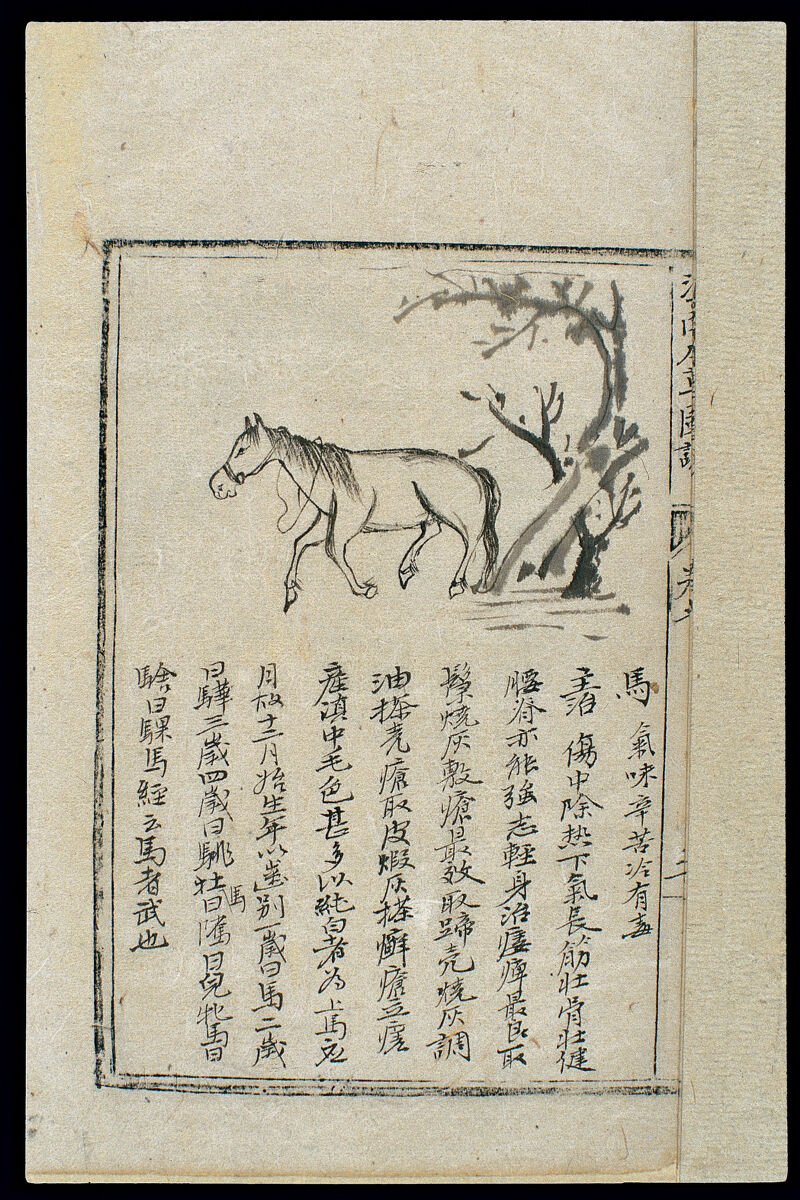 滇南本草圖說 卷
馬 氣味辛苦冷有毒
主治 傷中除热下氣長筋壯骨壯健
腰脊亦能強志輕身治痿痺最良取
鬃燒灰敷瘡最效取蹄壳燒灰調
油搽禿瘡取皮煅灰搽癬瘡立痊
産滇中毛色甚多以純白者為上馬應
月故十二月始生年以歲別一歲曰馬二歲
曰驊三歲四歲曰駣牡馬曰騭曰兒牝馬曰
騇曰騍馬經云馬者武也